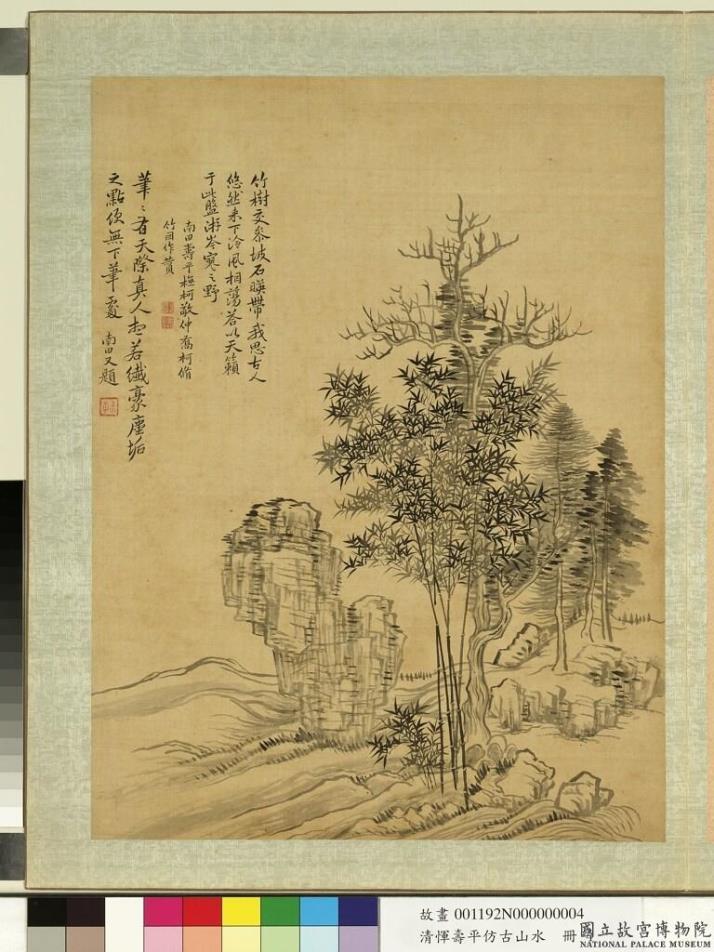 竹樹交參坡石暎帶我思古人
悠然来下泠風相蕩答以天籟
于此盤游岑寂之野
南田壽平橅柯敬仲喬柯脩
竹因作贊
筆〻有天際真人想若纖豪塵垢
之點便無下筆處
南田又題
故畫 001192N000000004
清惲壽平仿古山水 冊
國立故宮博物院
NATIONAL PALACE MUSEUM